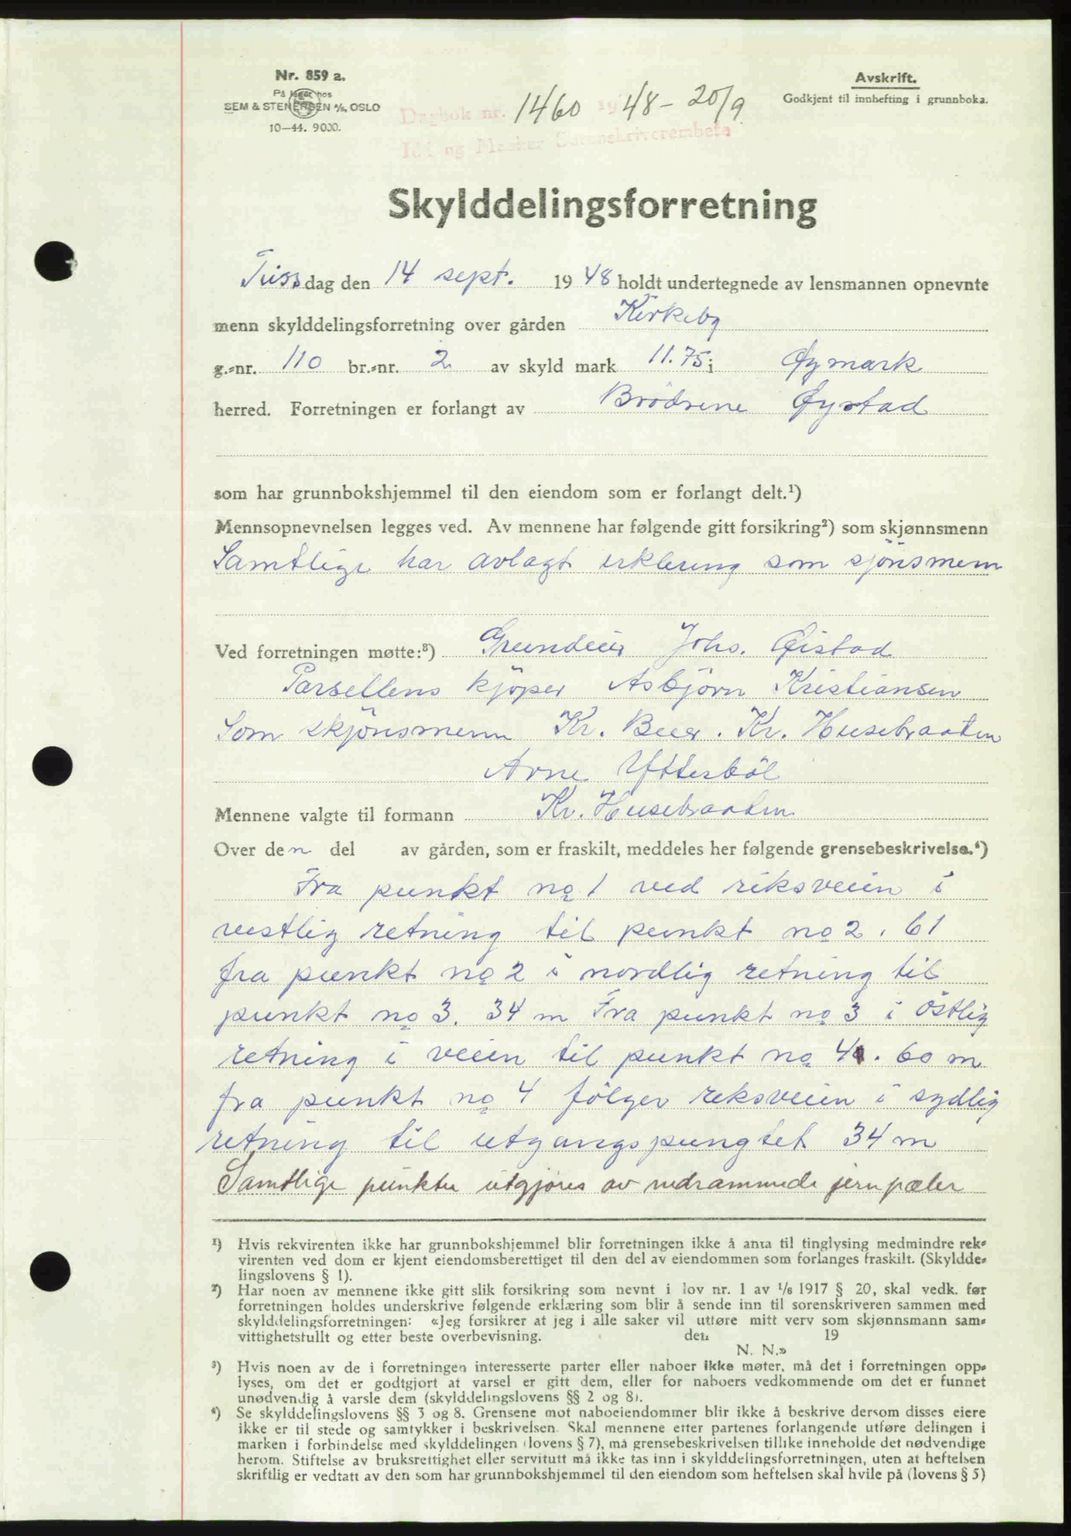 Nr. 859 a.
På lager hos
SEM & STENERSEN A/S, OSLO
10—44. 9000.
Avskrift.
Godkjent til innhefting i grunnboka.
Dagbok nr. 1460 19 48 - 20/9
Idd og Marker Sorenskriverembete
Skylddelingsforretning
Tirsdag den 14 sept. 1948 holdt undertegnede av lensmannen opnevnte
menn skylddelingsforretning over gården Kirkeby
g.-nr. 110 br.-nr. 2 av skyld mark 11.75 i Øymark
herred. Forretningen er forlangt av Brødrene Øystad
som har grunnbokshjemmel til den eiendom som er forlangt delt.¹)
Mennsopnevnelsen legges ved. Av mennene har følgende gitt forsikring²) som skjønnsmenn
Samtlige har avlagt erklering som sjönsmenn
Ved forretningen møtte:³) Grundeier Johs. Øistad
Parsellens kjöper Asbjörn Kristiansen
Som skjönsmenn Kr. Beer. Kr. Husebraaten
Arne Ytterböl
Mennene valgte til formann Kr. Husebraaten
Over den del av gården, som er fraskilt, meddeles her følgende grensebeskrivelse.⁴)
Fra punkt no 1 ved riksveien i
vestlig retning til punkt no 2. 61
fra punkt no 2 i nordlig retning til
punkt no 3. 34 m Fra punkt no 3 i östlig
retning i veien til punkt no 4. 60 m
fra punkt no 4 fölger reksveien i sydlig
retning til utgangspungtet 34 m
Samtlige punkter utgjöres av nedrammede jernpæler
¹) Hvis rekvirenten ikke har grunnbokshjemmel blir forretningen ikke å anta til tinglysing medmindre rek-
virenten ved dom er kjent eiendomsberettiget til den del av eiendommen som forlanges fraskilt. (Skyldde-
lingslovens § 1).
²) Har noen av mennene ikke gitt slik forsikring som nevnt i lov nr. 1 av 1/6 1917 § 20, skal vedk. før
forretningen holdes underskrive følgende erklæring som blir å sende inn til sorenskriveren sammen med
skylddelingsforretningen: «Jeg forsikrer at jeg i alle saker vil utføre mitt verv som skjønnsmann sam-
vittighetsfullt og etter beste overbevisning. den 19
N. N.»
³) Hvis noen av de i forretningen interesserte parter eller naboer ikke møter, må det i forretningen opp-
lyses, om det er godtgjort at varsel er gitt dem, eller for naboers vedkommende om det er funnet
unødvendig å varsle dem (skylddelingslovens §§ 2 og 8).
⁴) Se skylddelingslovens §§ 3 og 8. Grensene mot naboeiendommer blir ikke å beskrive dersom disses eiere
ikke er til stede og samtykker i beskrivelsen. Skal mennene etter partenes forlangende utføre delingen i
marken i forbindelse med skylddelingen (lovens § 7), må grensebeskrivelsen tillike inneholde det nødvendige
herom. Stiftelse av bruksrettighet eller servitutt må ikke tas inn i skylddelingsforretningen, uten at heftelsen
skriftlig er vedtatt av den som har grunnbokshjemmel til den eiendom som heftelsen skal hvile på (lovens § 5)